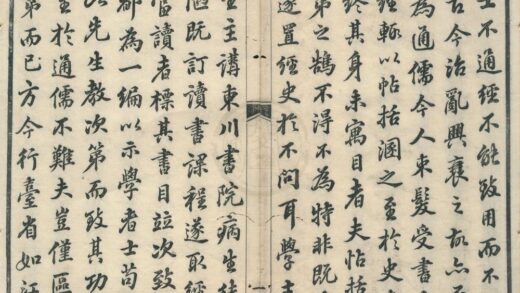 士不通經不能致用而不
古今治亂興衰之故亦不
為通儒今人束髮受書
經輒以帖括溷之至於史
終其身未寓目者夫帖括
第之鵠不得不為特非既
遂置經史於不問耳學
主講東川書院病生
陋既訂讀書課程遂取經
當讀者標其書目竝次致
都為一編以示學者士苟
先生教次第而致其功
至於通儒不難夫豈僅區
第而已方今行臺省如